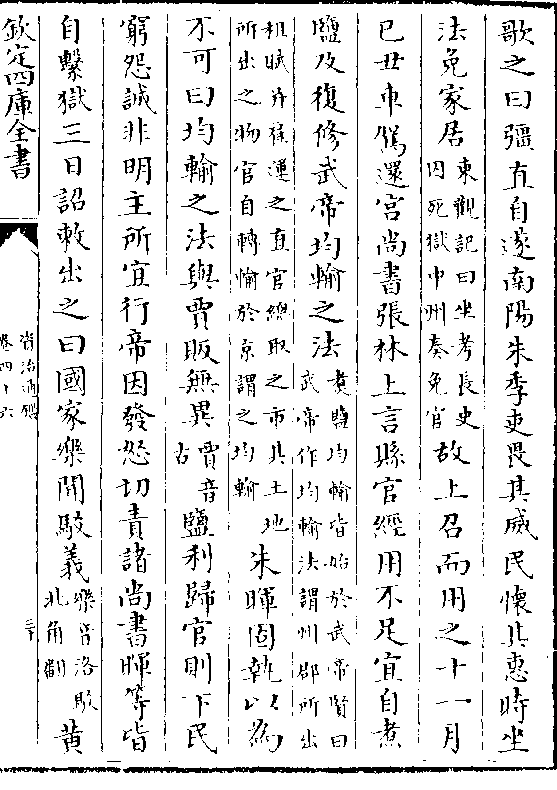 歌之曰彊直自遂南陽朱季吏畏其威民懷其惠時坐
法免家居東觀記曰坐考長史
囚死獄中州奏免官故上召而用之十一月
己丑車駕還宮尚書張林上言縣官經用不足宜自煮
鹽及復修武帝均輸之法煑鹽均輸皆始於武帝賢曰
武帝作均輸法謂州郡所出
租賦并雇運之直官總取之市其土地
所出之物官自轉輸於京謂之均輸朱暉固執以為
不可曰均輸之法與賈販無異賈音
古鹽利歸官則下民
窮怨誠非明主所宜行帝因發怒切責諸尚書暉等皆
自繫獄三日詔敕出之曰國家樂聞駮義樂音洛駮
北角翻黄
欽定四庫全書
資治通鑑
卷四十六